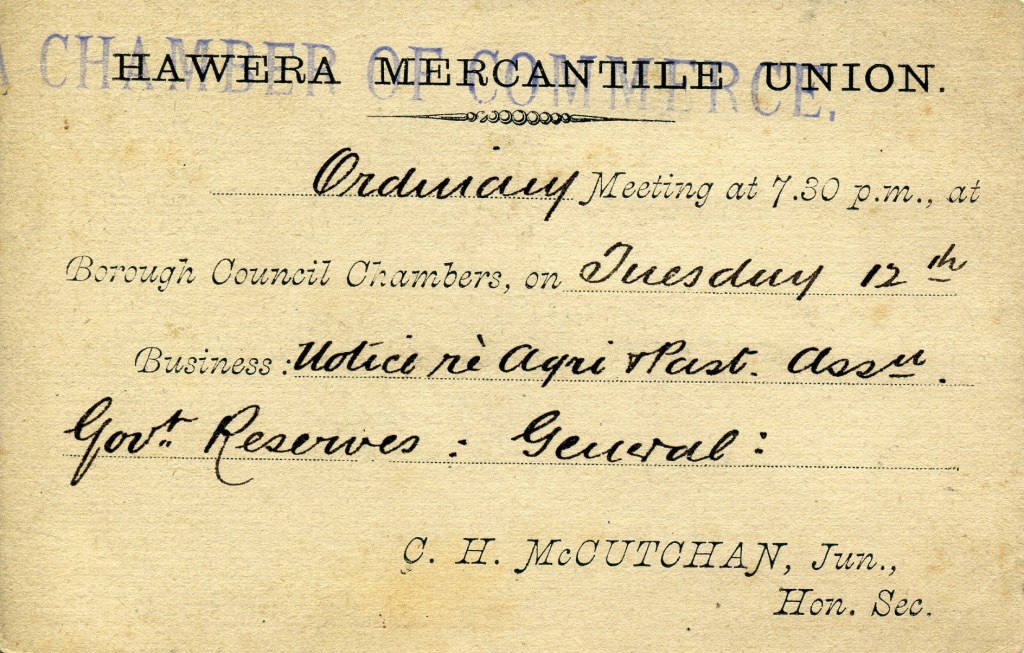 A CHAMBER OF COMMERCE.
HAWERA MERCANTILE UNION.
Ordinary Meeting at 7.30 p.m., at
Borough Council Chambers, on Tuesday 12th
Business: Notice rè Agri & Past. Assn.
Govt. Reserves : General :
C. H. McCUTCHAN, Jun.,
Hon. Sec.